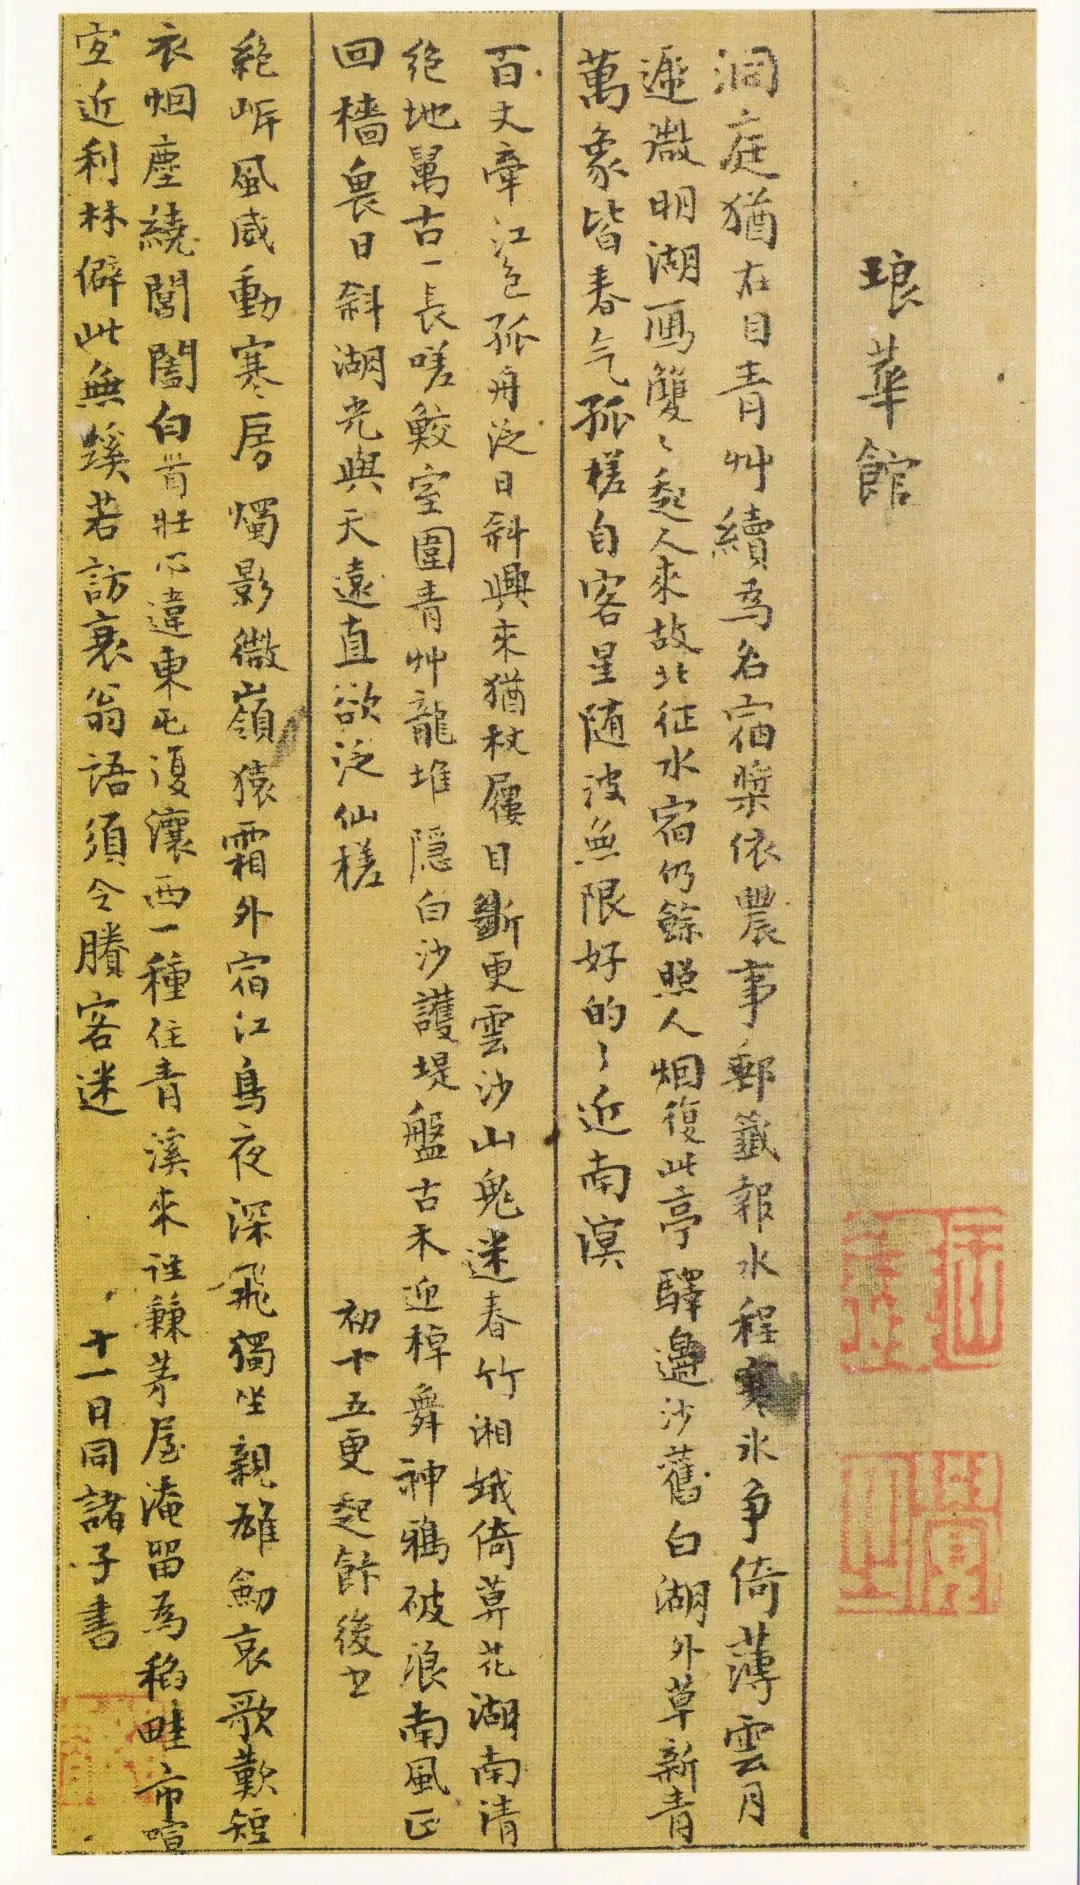 琅華館
洞庭猶在目青艸續為名宿槳依農事郵籤報水程寒氷争倚薄雲月
遞微明湖雁雙〻起人來故北征水宿仍餘照人烟復此亭驛邊沙舊白湖外草新青
萬象皆春气孤槎自客星随波無限好的〻近南溟
百丈牽江色孤舟泛日斜興來猶杖屨目斷更雲沙山鬼迷春竹湘娥倚暮花湖南清
絶地萬古一長嗟鮫室圍青艸龍堆隱白沙護堤盤古木迎棹舞神鴉破浪南風正
回檣畏日斜湖光與天遠直欲泛仙槎 初十五更起飰後书
絶岍風威動寒房燭影微嶺猿霜外宿江鳥夜深飛獨坐親雄劎哀歌歎短
衣烟塵繞閶闔白首壯心違東屯復瀼西一種住青溪來往兼茅屋淹留為稻畦市喧
宜近利林僻此無蹊若訪衰翁語須令賸客迷 十一日同諸子書